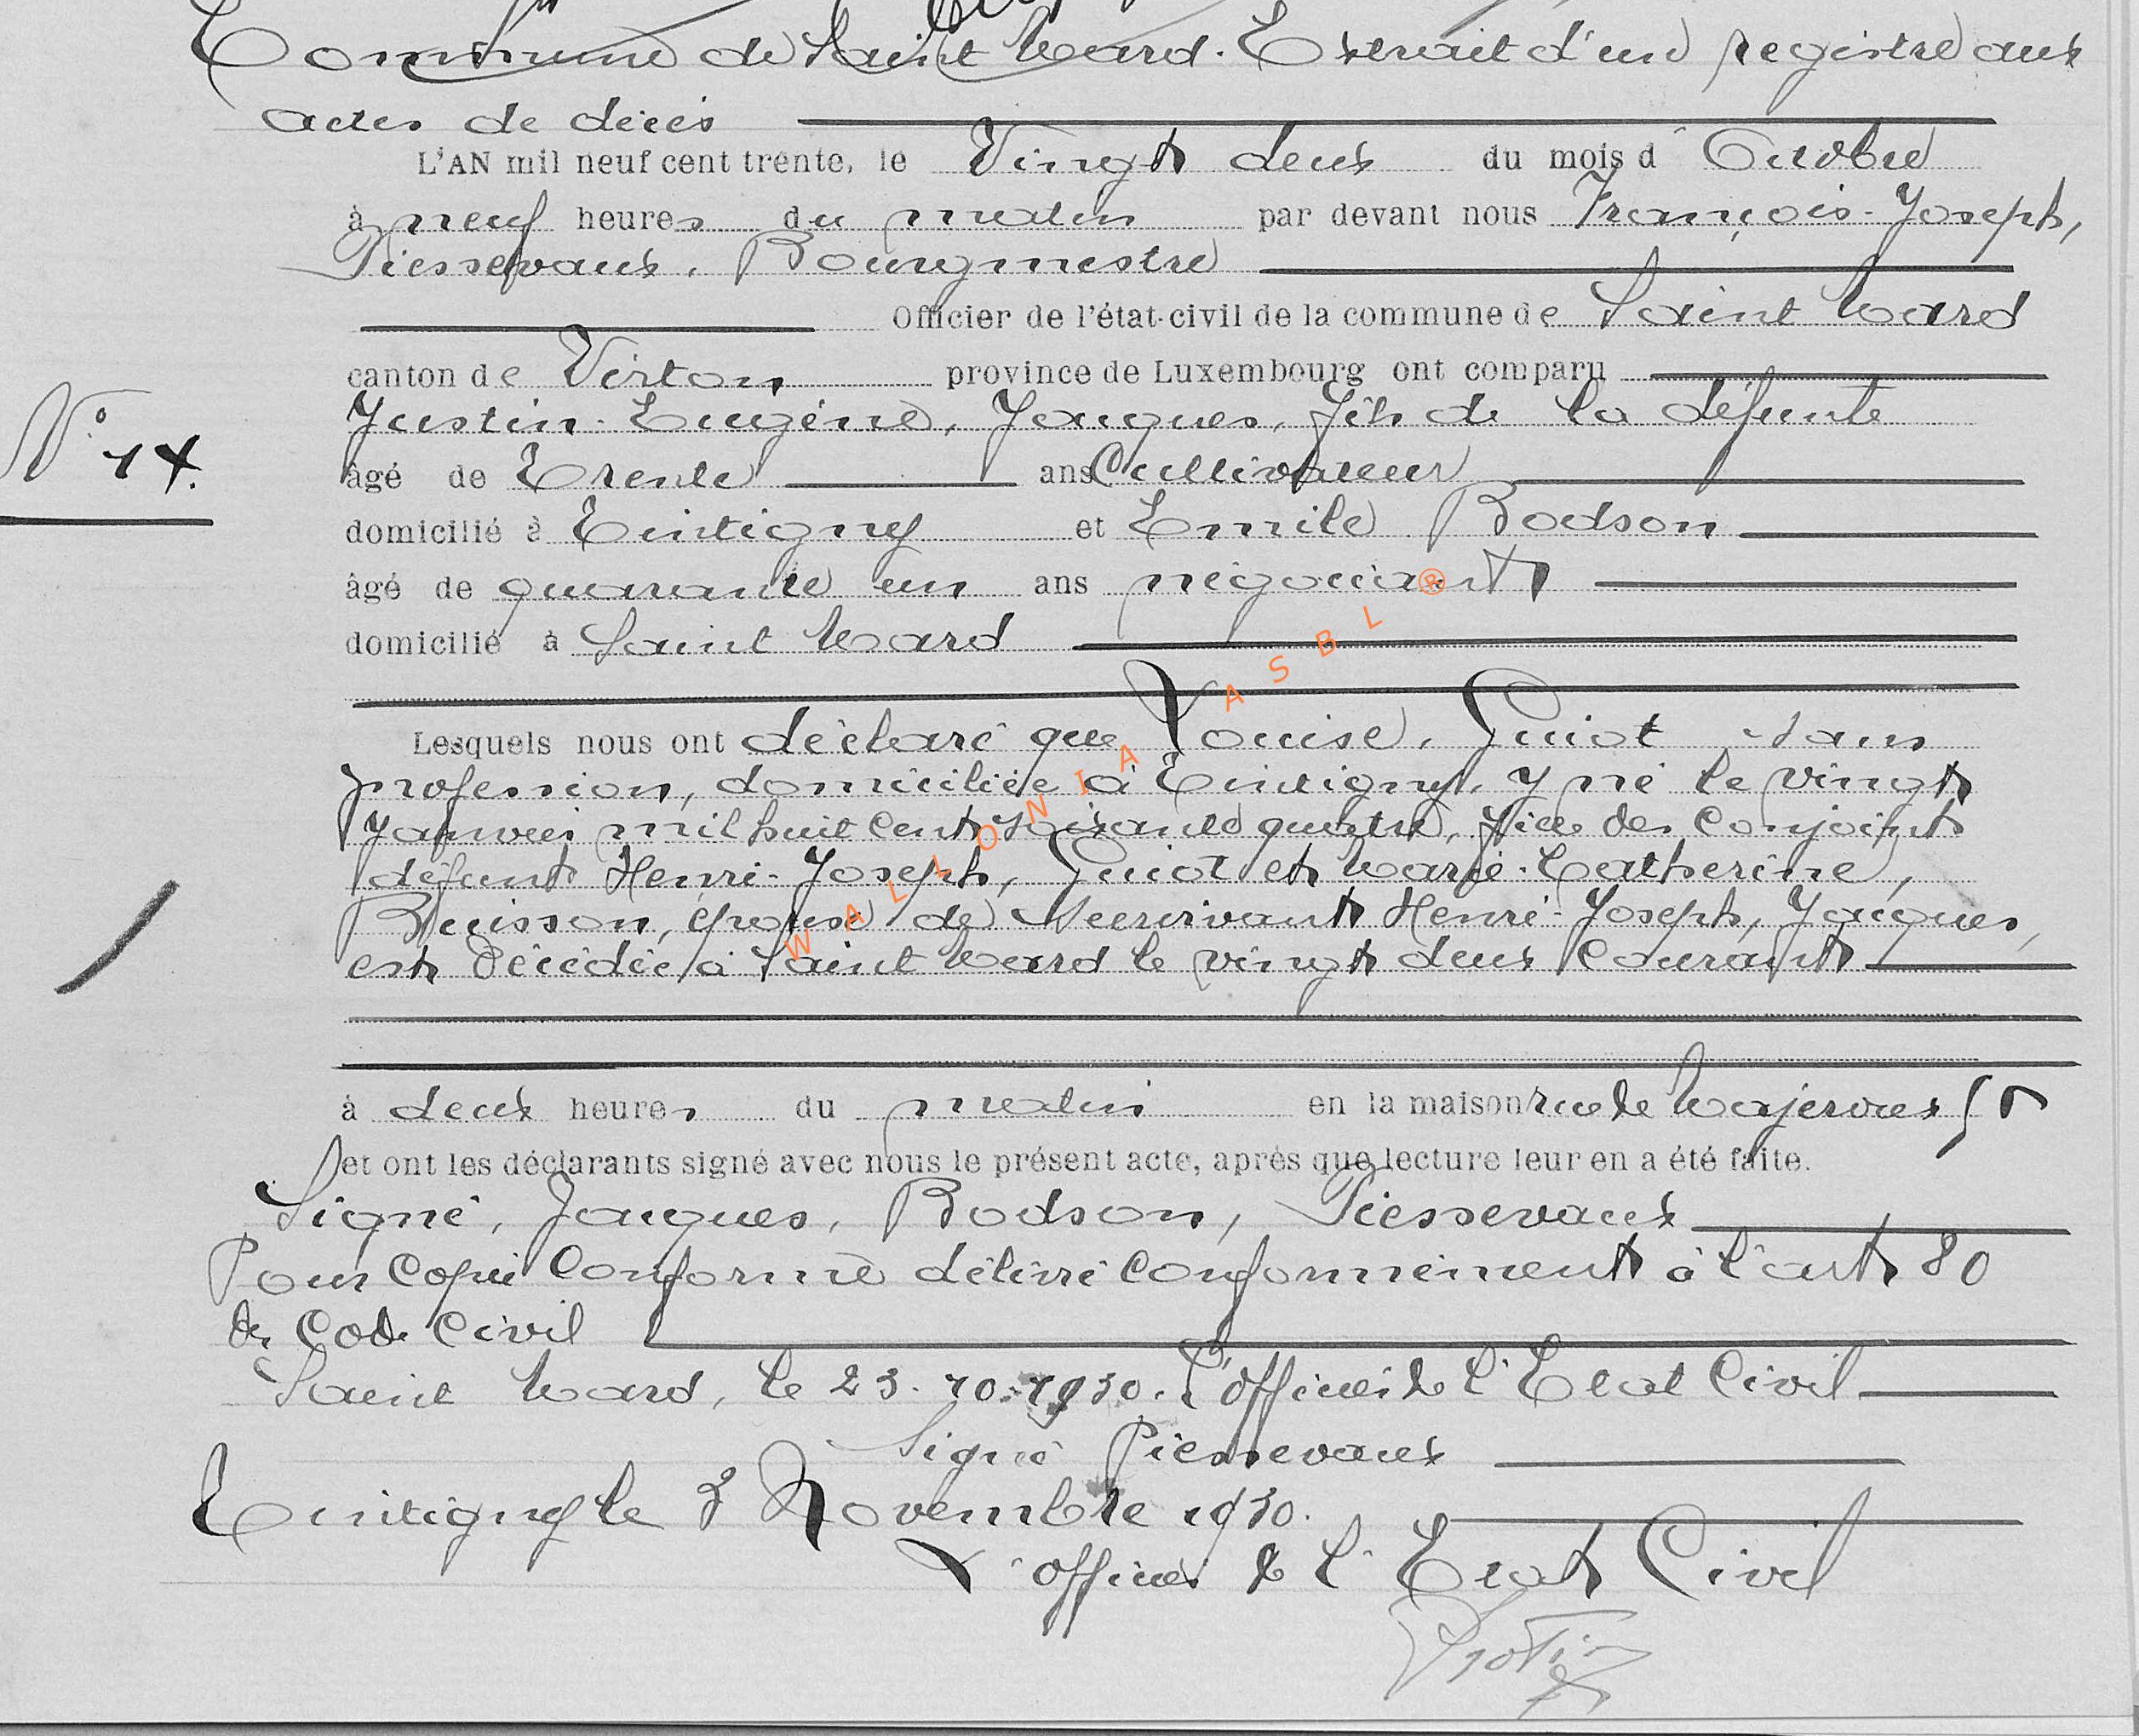 Commune de Saint Mard. Extrait d'un registre aux
actes de décès
L'AN mil neuf cent trente, le Vingt deux du mois d' Octobre
à neuf heures du matin par devant nous François-Joseph,
Piessevaux, Bourgmestre
Officier de l'état-civil de la commune de Saint Mard
canton de Virton province de Luxembourg ont comparu
Justin-Eugène, Jacques, fils de la défunte
N° 14.
âgé de Trente ans Cultivateur
domicilié à Tintigny et Emile Bodson
âgé de quarante un ans négociant
domicilié à Saint Mard
Lesquels nous ont déclaré que Louise, Guiot sans
profession, domiciliée à Tintigny, y né le vingt
Janvier mil huit cent soixante quatre, fille des conjoints
défunts Henri-Joseph, Guiot et Marie-Catherine,
Buisson, épouse de survivant Henri-Joseph, Jacques,
est décédée à Saint Mard le vingt deux courant
à deux heures du matin en la maison rue de Majeroux
et ont les déclarants signé avec nous le présent acte, après que lecture leur en a été faite.
Signé, Jacques, Bodson, Piessevaux
Pour copie conforme délivré conformément à l'art 80
du Code Civil
Saint Mard, le 23.10.1930. L'officier de l'Etat Civil
Signé Piessevaux
Tintigny le 3 Novembre 1930.
L'officier de l'Etat Civil
WALLONIA ASBL ®